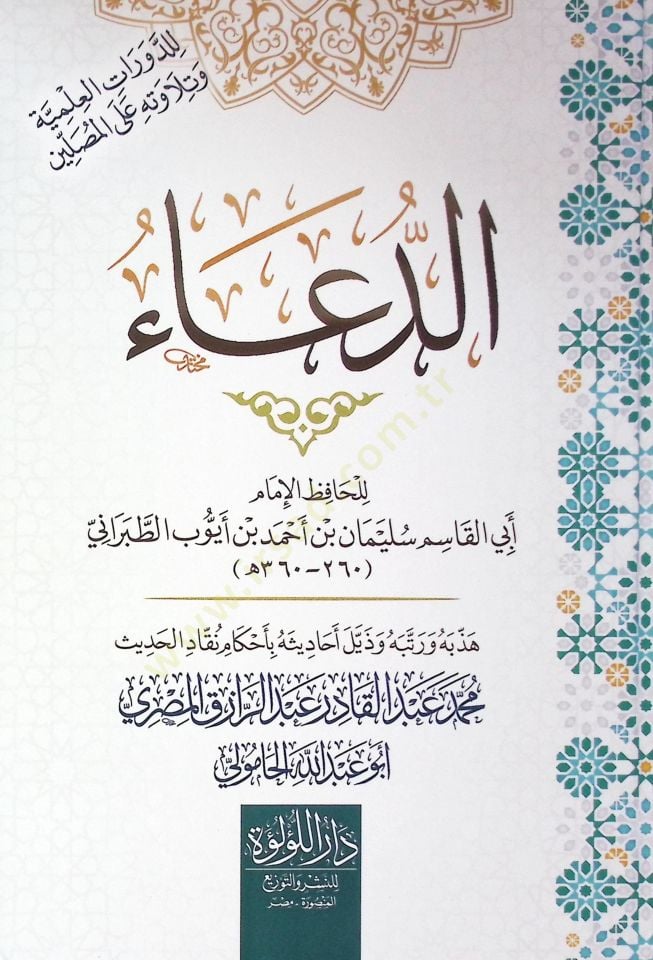 لِلدَّوَرَاتِ العِلْمِيَّة
وَتِلَاوَتِهِ عَلَى المُصَلِّين
الدُّعَاءُ
لِلْحَافِظِ الإِمَام
أَبِي القَاسِم سُلَيْمَان بْن أَحْمَد بْن أَيُّوب الطَّبَرَانِيّ
(٢٦٠-٣٦٠هـ)
هَذَّبَهُ وَرَتَّبَهُ وَذَيَّلَ أَحَادِيثَهُ بِأَحْكَامِ نُقَّادِ الحَدِيث
مُحَمَّد عَبْد القَادِر عَبْد الرَّازِق المِصْرِي
أَبُو عَبْد اللَّهِ الحَامُولِيّ
دَارُ اللُّؤْلُؤَة
لِلنَّشْرِ وَالتَّوْزِيع
المَنْصُورَة - مِصْر